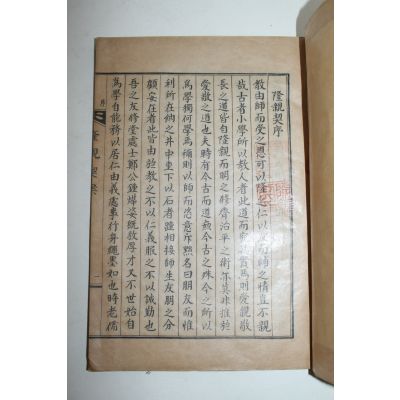 隆親契序
教由師而受之恩可以隆志仁以而輔之情豈不親
哉古者小學所以教人者此道而實爲則愛親敬
長之道皆自隆親而明之修齊治平之術亦莫非推於
愛敬之道也夫時有今古而道無今古之殊今之所以
爲學獨何學焉稱則以師而恣意斥黜名曰朋友而惟
利所在納之井中重下以石者踵相接師生友朋之分
顧安在者也皆由於教之不以仁義服之不以誠勤也
吾之友修堂處士鄭公鍾 姿旣敦厚才又不世始自
爲學自能務以居仁由義處事行身繩墨如也時老儒
序
隆親契案
一